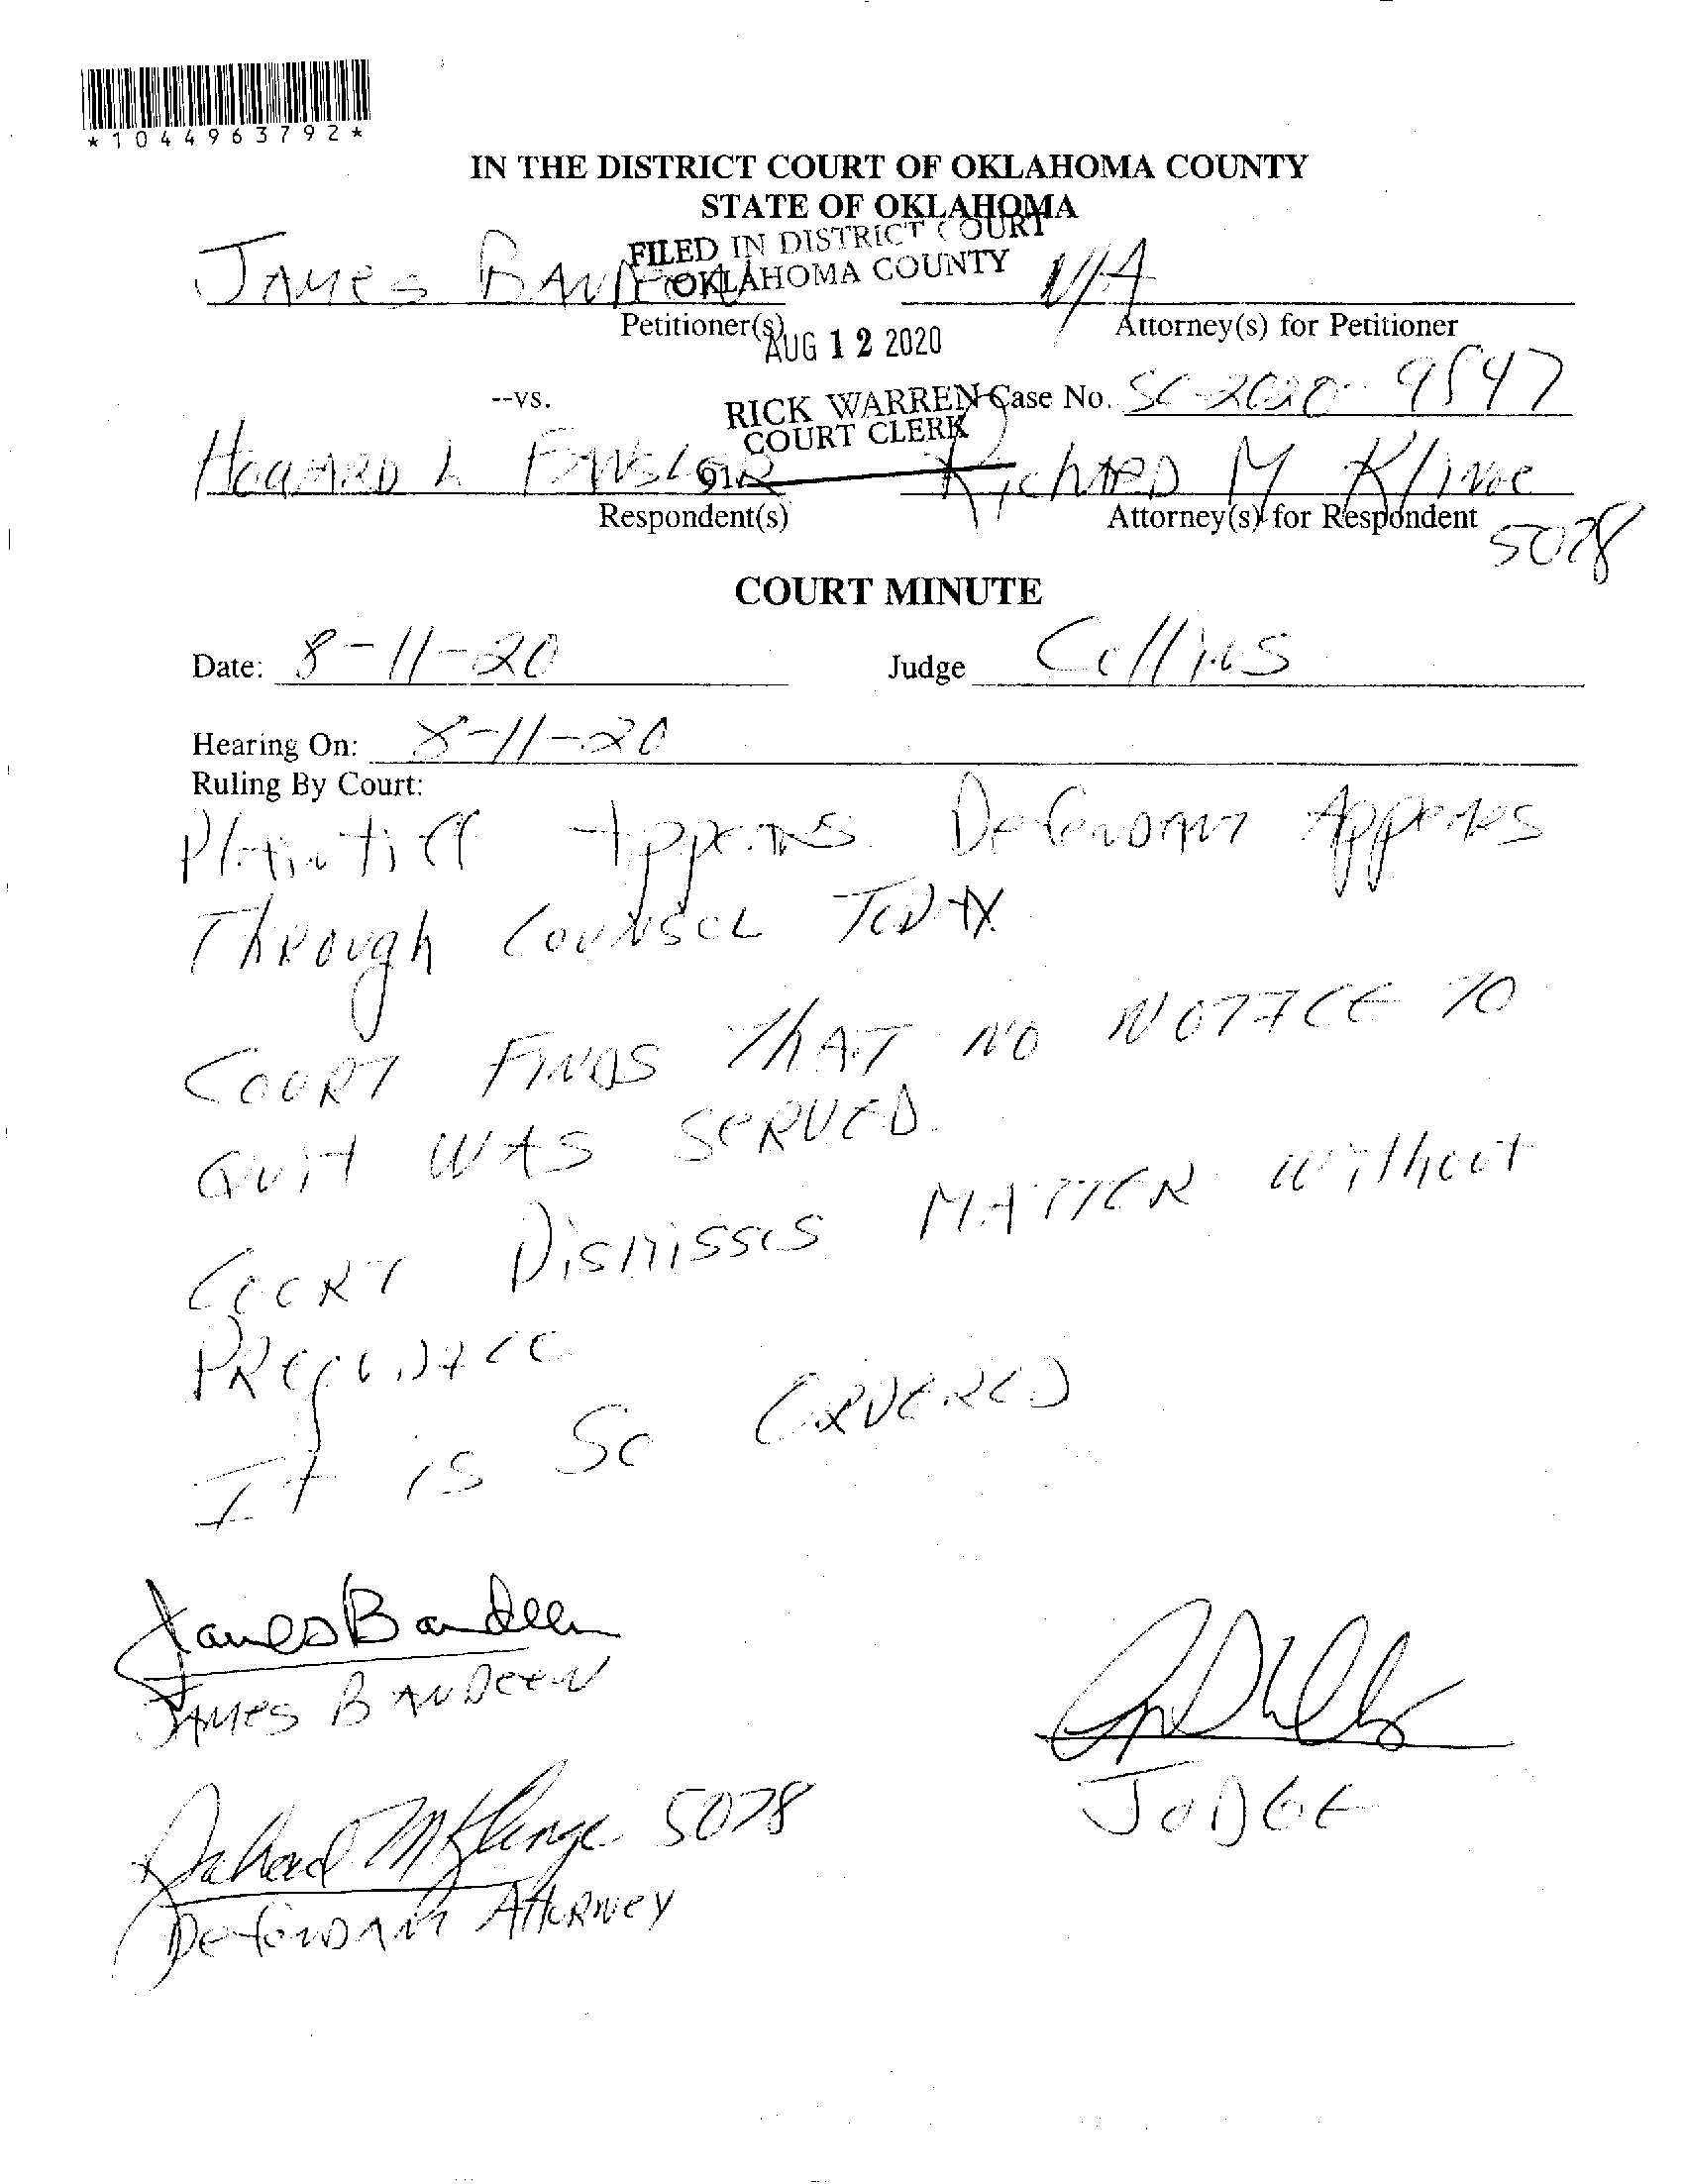 *1044963792*
IN THE DISTRICT COURT OF OKLAHOMA COUNTY
STATE OF OKLAHOMA
FILED IN DISTRICT COURT
OKLAHOMA COUNTY
JAMES
N/A
Petitioner(s)
Attorney(s) for Petitioner
AUG 12 2020
--vs.
RICK WARREN
COURT CLERK
Case No. SC-2020-9547
91
Howard L
Richard M Kline
Respondent(s)
Attorney(s) for Respondent
5078
COURT MINUTE
Date: 8-11-20
Judge Collins
Hearing On: 8-11-20
Ruling By Court:
Plaintiff Appears Defendant Appears
Through Counsel TODAY
COURT FINDS THAT NO NOTICE TO
QUIT WAS SERVED.
COURT Dismisses MATTER without
PREJUDICE
It is So ORDERED
James Bandeen
JAMES BANDEEN
5078
Defendant Attorney
JUDGE